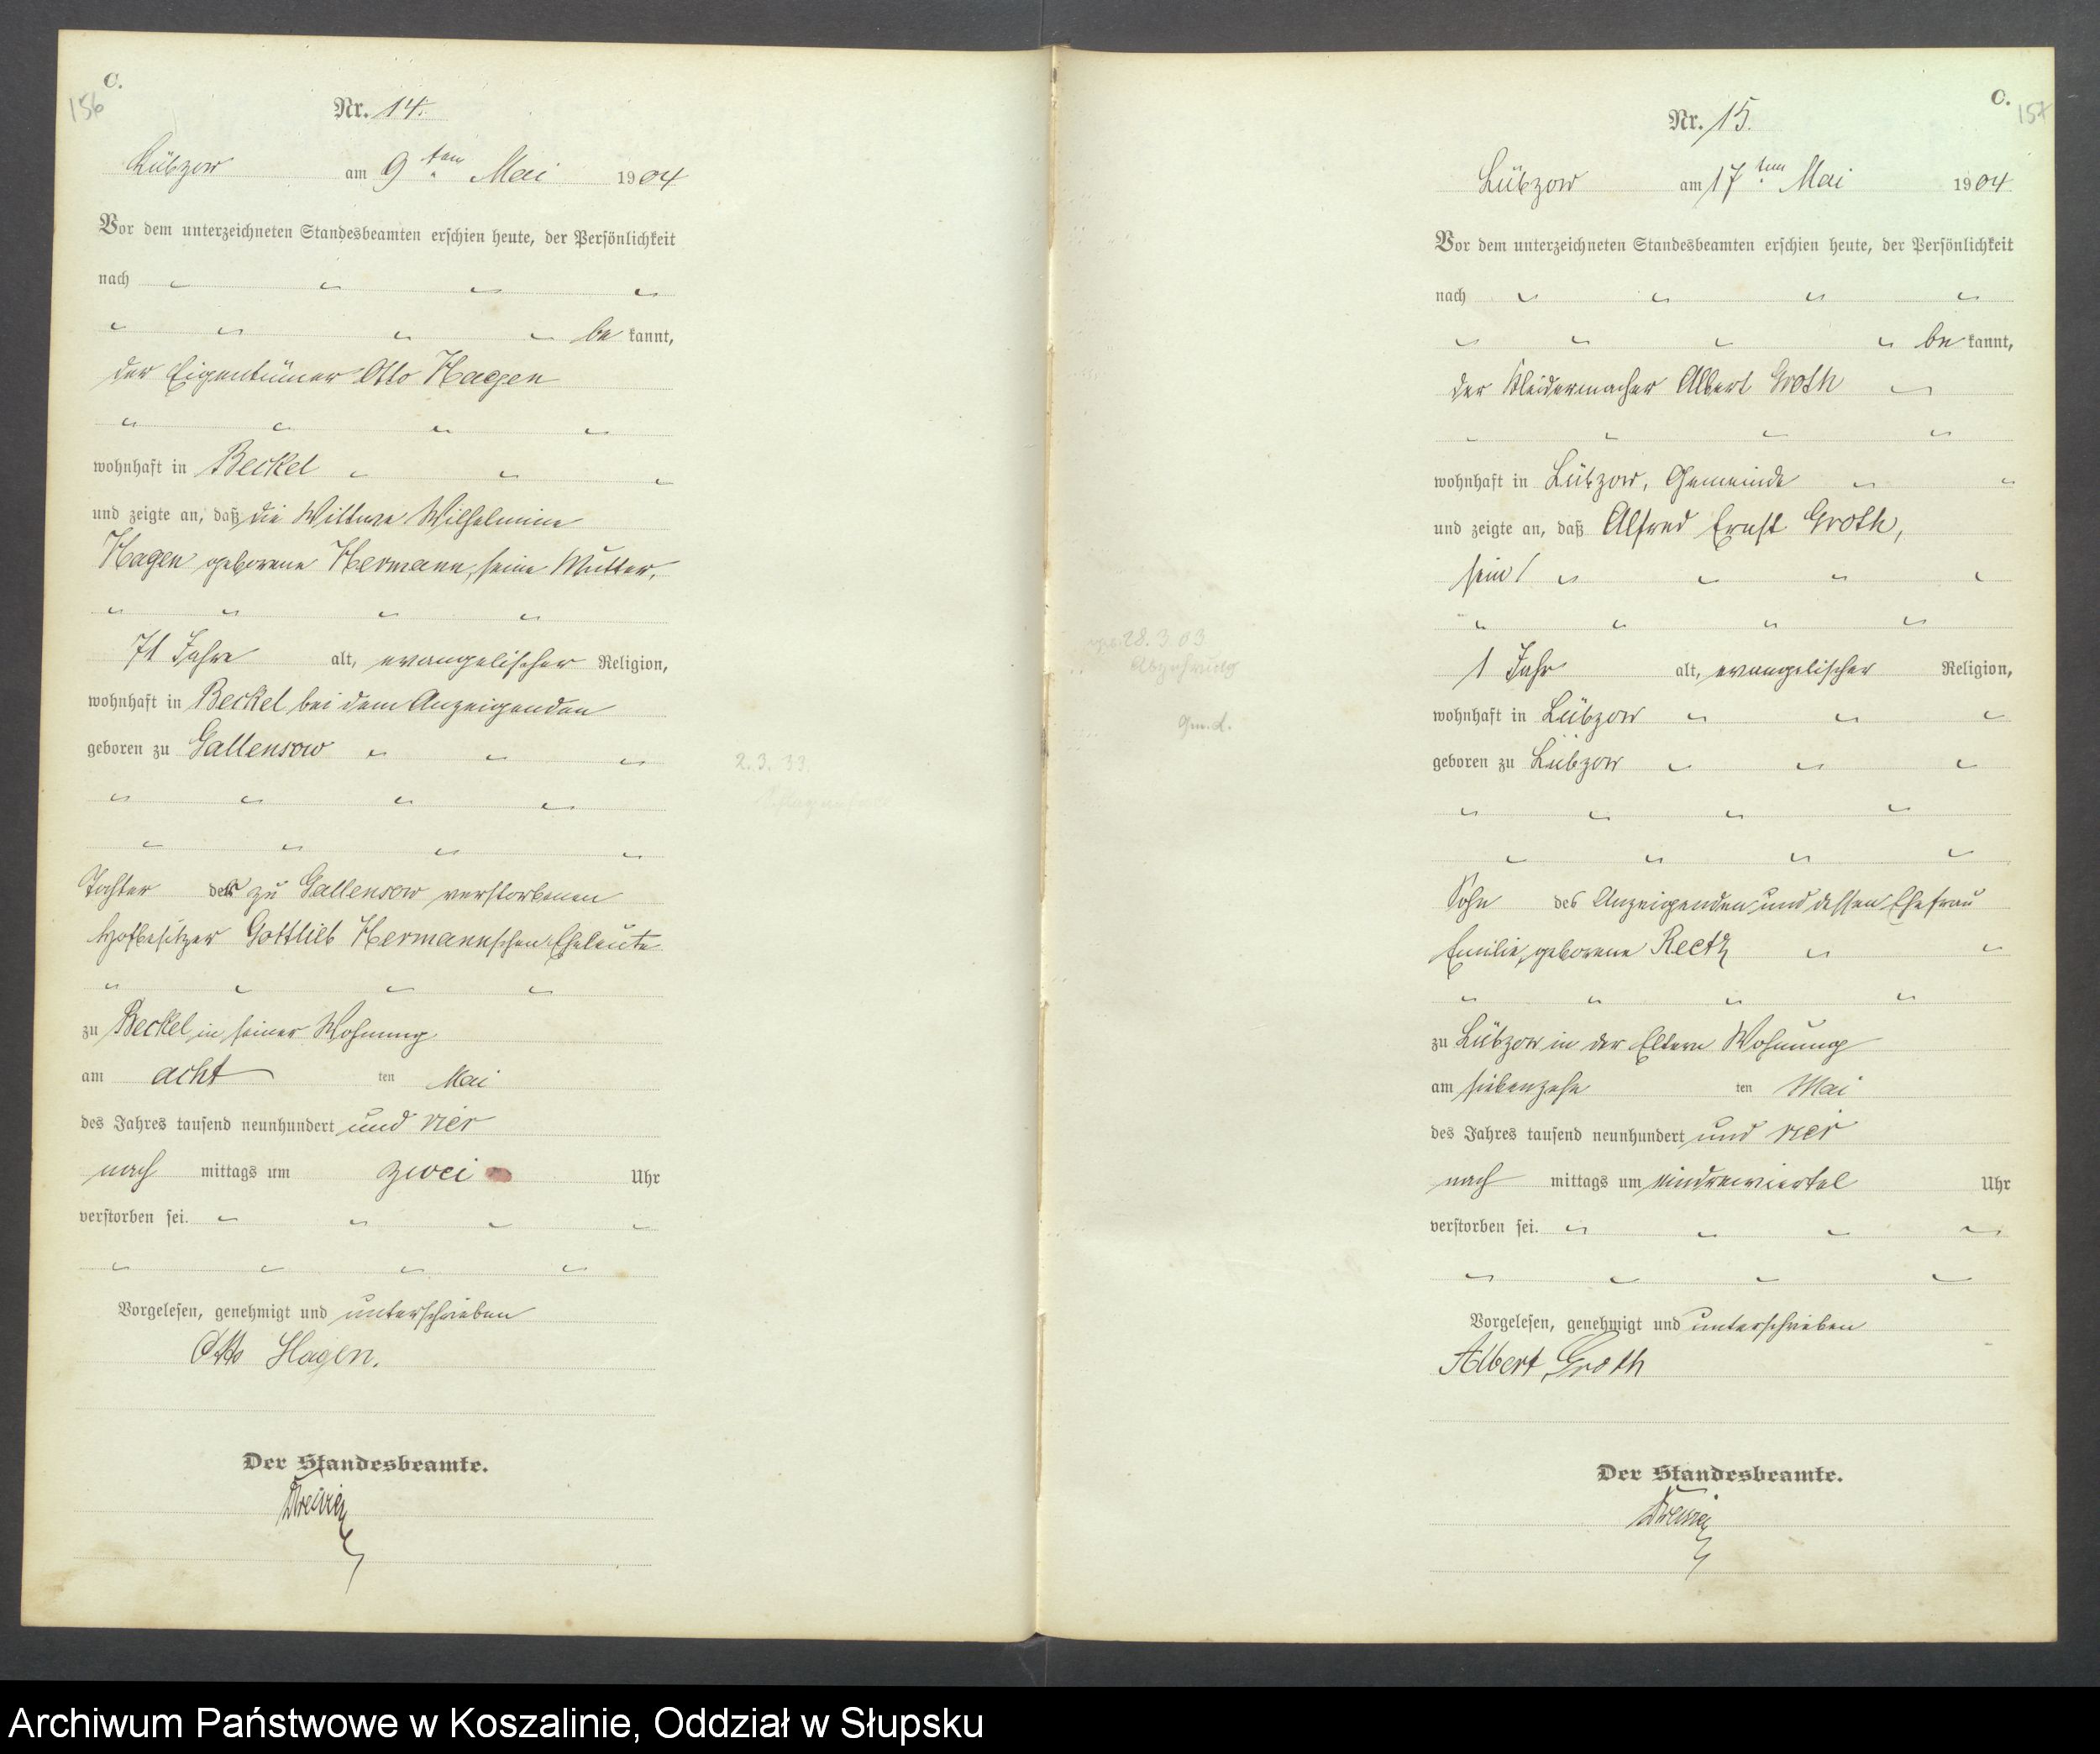 C.
156
Nr. 14.
Lübzow am 9ten Mai 1904
Vor dem unterzeichneten Standesbeamten erschien heute, der Persönlichkeit
nach
be kannt,
der Eigentümer Otto Hagen
wohnhaft in Beckel
und zeigte an, daß die Wittwe Wilhelmine
Hagen geborene Hermann, seine Mutter,
71 Jahre alt, evangelischer Religion,
wohnhaft in Beckel bei dem Anzeigenden
geboren zu Gallensow
2.3.33.
Tochter der zu Gallensow verstorbenen
Hofbesitzer Gottlieb Hermannschen Eheleute
zu Beckel in seiner Wohnung
am acht ten Mai
des Jahres tausend neunhundert und vier
nach mittags um zwei Uhr
verstorben sei.
Vorgelesen, genehmigt und unterschrieben
Otto Hagen.
Der Standesbeamte.
C.
157
Nr. 15.
Lübzow am 17ten Mai 1904
Vor dem unterzeichneten Standesbeamten erschien heute, der Persönlichkeit
nach
be kannt,
der Kleidermacher Albert Groth
wohnhaft in Lübzow, Gemeinde
und zeigte an, daß Alfred Ernst Groth,
sein
28.3.03
Abzehrung
1 Jahr alt, evangelischer Religion,
wohnhaft in Lübzow
Gm. L.
geboren zu Lübzow
Sohn des Anzeigenden und dessen Ehefrau
Emilie, geborene
zu Lübzow in der Eltern Wohnung
am siebenzehn ten Mai
des Jahres tausend neunhundert und vier
nach mittags um eindreiviertel Uhr
verstorben sei.
Vorgelesen, genehmigt und unterschrieben
Albert Groth
Der Standesbeamte.
Archiwum Państwowe w Koszalinie, Oddział w Słupsku